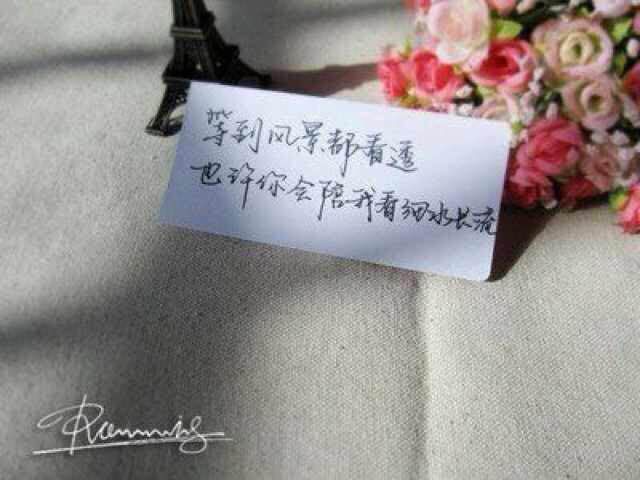 等到风景都看透
也许你会陪我看细水长流